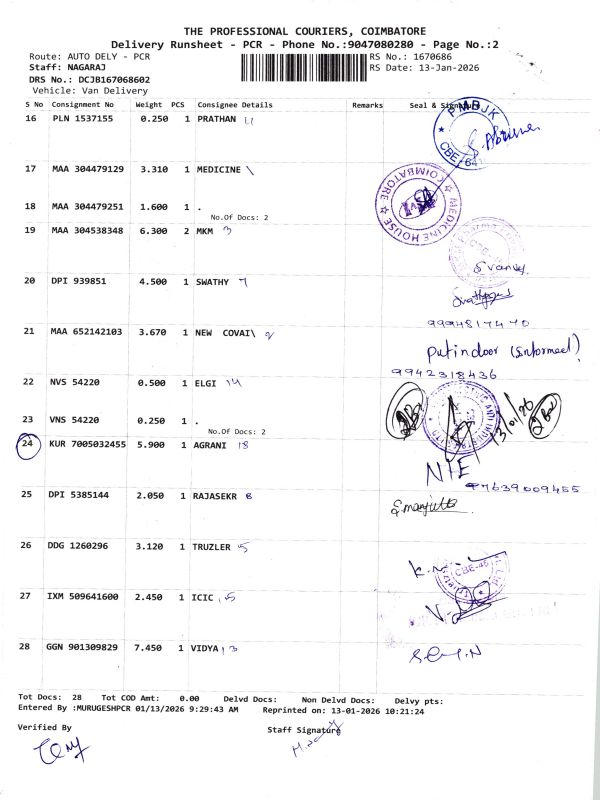 THE PROFESSIONAL COURIERS, COIMBATORE
Delivery Runsheet - PCR - Phone No.:9047080280 - Page No.:2
Route: AUTO DELY - PCR RS No.: 1670686
Staff: NAGARAJ RS Date: 13-Jan-2026
DRS No.: DCJB167068602
Vehicle: Van Delivery
S No Consignment No Weight PCS Consignee Details Remarks Seal &
16 PLN 1537155 0.250 1 PRATHAN
PMBJK
CBE-641
17 MAA 304479129 3.310 1 MEDICINE \
MEDICINE HOUSE ☆ COIMBATORE ☆
18 MAA 304479251 1.600 1 .
No.Of Docs: 2
19 MAA 304538348 6.300 2 MKM 3
20 DPI 939851 4.500 1 SWATHY 7
9994817470
21 MAA 652142103 3.670 1 NEW COVAI\ 9
Put indoor (Informed)
9942318436
22 NVS 54220 0.500 1 ELGI 14
23 VNS 54220 0.250 1 .
No.Of Docs: 2
13/01/26
24 KUR 7005032455 5.900 1 AGRANI 18
NIE
97639009455
25 DPI 5385144 2.050 1 RAJASEKR 6
26 DDG 1260296 3.120 1 TRUZLER 5
CBE-45
27 IXM 509641600 2.450 1 ICIC 5
28 GGN 901309829 7.450 1 VIDYA 13
Tot Docs: 28 Tot COD Amt: 0.00 Delvd Docs: Non Delvd Docs: Delvy pts:
Entered By :MURUGESHPCR 01/13/2026 9:29:43 AM Reprinted on: 13-01-2026 10:21:24
Verified By Staff Signature